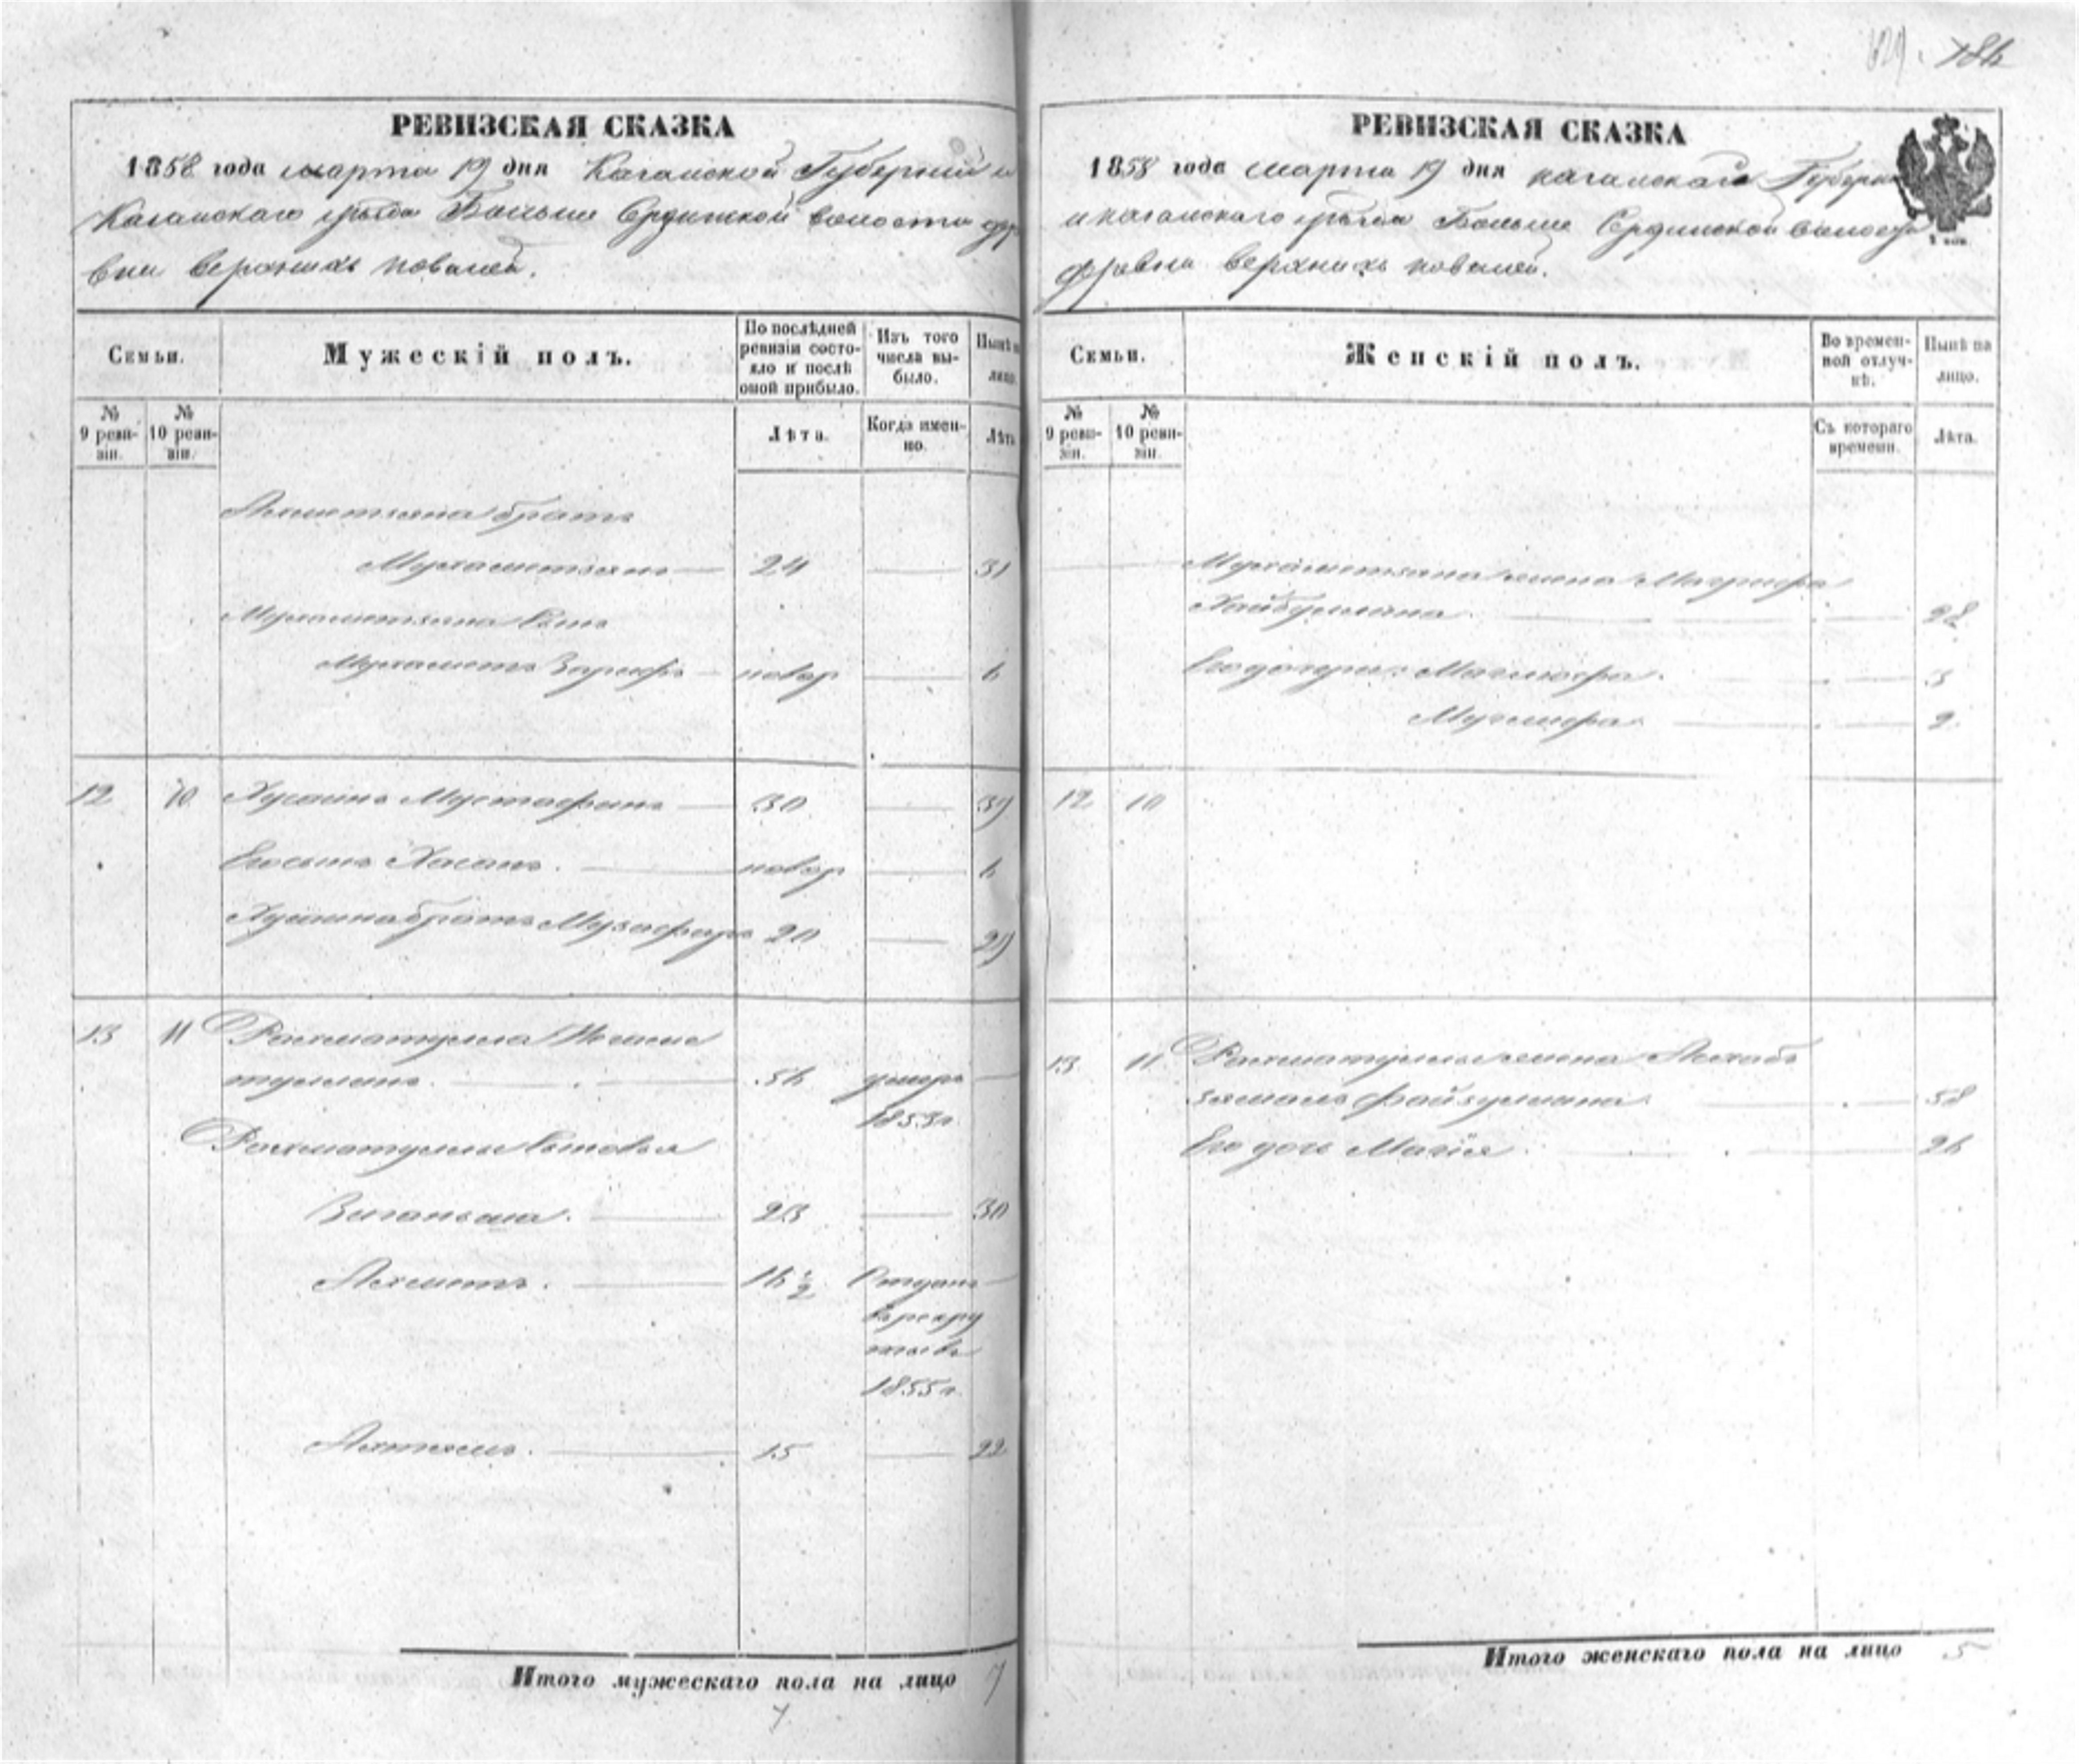 184
РЕВИЗСКАЯ СКАЗКА
1858 года марта 19 дня Казанской Губернии и
Казанскаго уѣзда Больше Сердинской волости дер
вни верхнихъ поваліей.
Семьи.
Мужескій полъ.
По послѣдней ревизіи состояло и послѣ оной прибыло.
Изъ того числа выбыло.
Нынѣ на лицо.
№ 9 ревизіи.
№ 10 ревизіи.
Лѣта.
Когда именно.
Лѣта
Ахметзяна братъ
Мухаметзянъ 24 31
Мухаметзяна сынъ
Мухаметъ Зарифъ новор 6
12 10 Хусаинъ Мустафинъ 30 37
Его сынъ Хасанъ. новор 6
Хусаина братъ Музафаръ 20 27
13 11 Рахматулла
туллинъ. 56 умеръ
1853г.
Рахматуллы сыновья
Зиганьша. 23 30
Ахметъ. 16 1/2 Отданъ
въ рекру
ты въ
1855г.
15 22
Итого мужескаго пола на лицо 7
РЕВИЗСКАЯ СКАЗКА
1858 года марта 19 дня казанской Губерн
и казанскаго уѣзда Больше Сердинской волости
деревни верхнихъ поваліей.
Семьи.
Женскій полъ.
Во временной отлучкѣ.
Нынѣ на лицо.
№ 9 ревизіи.
№ 10 ревизіи.
Съ котораго времени.
Лѣта.
Мухаметзяна жена Магрифа
Хайбуллина. 28
Его дочери: 3
2
12 10
13 11 Рахматуллы жена
зямалъ Файзуллина 58
Его дочь Магія. 26
Итого женскаго пола на лицо 5